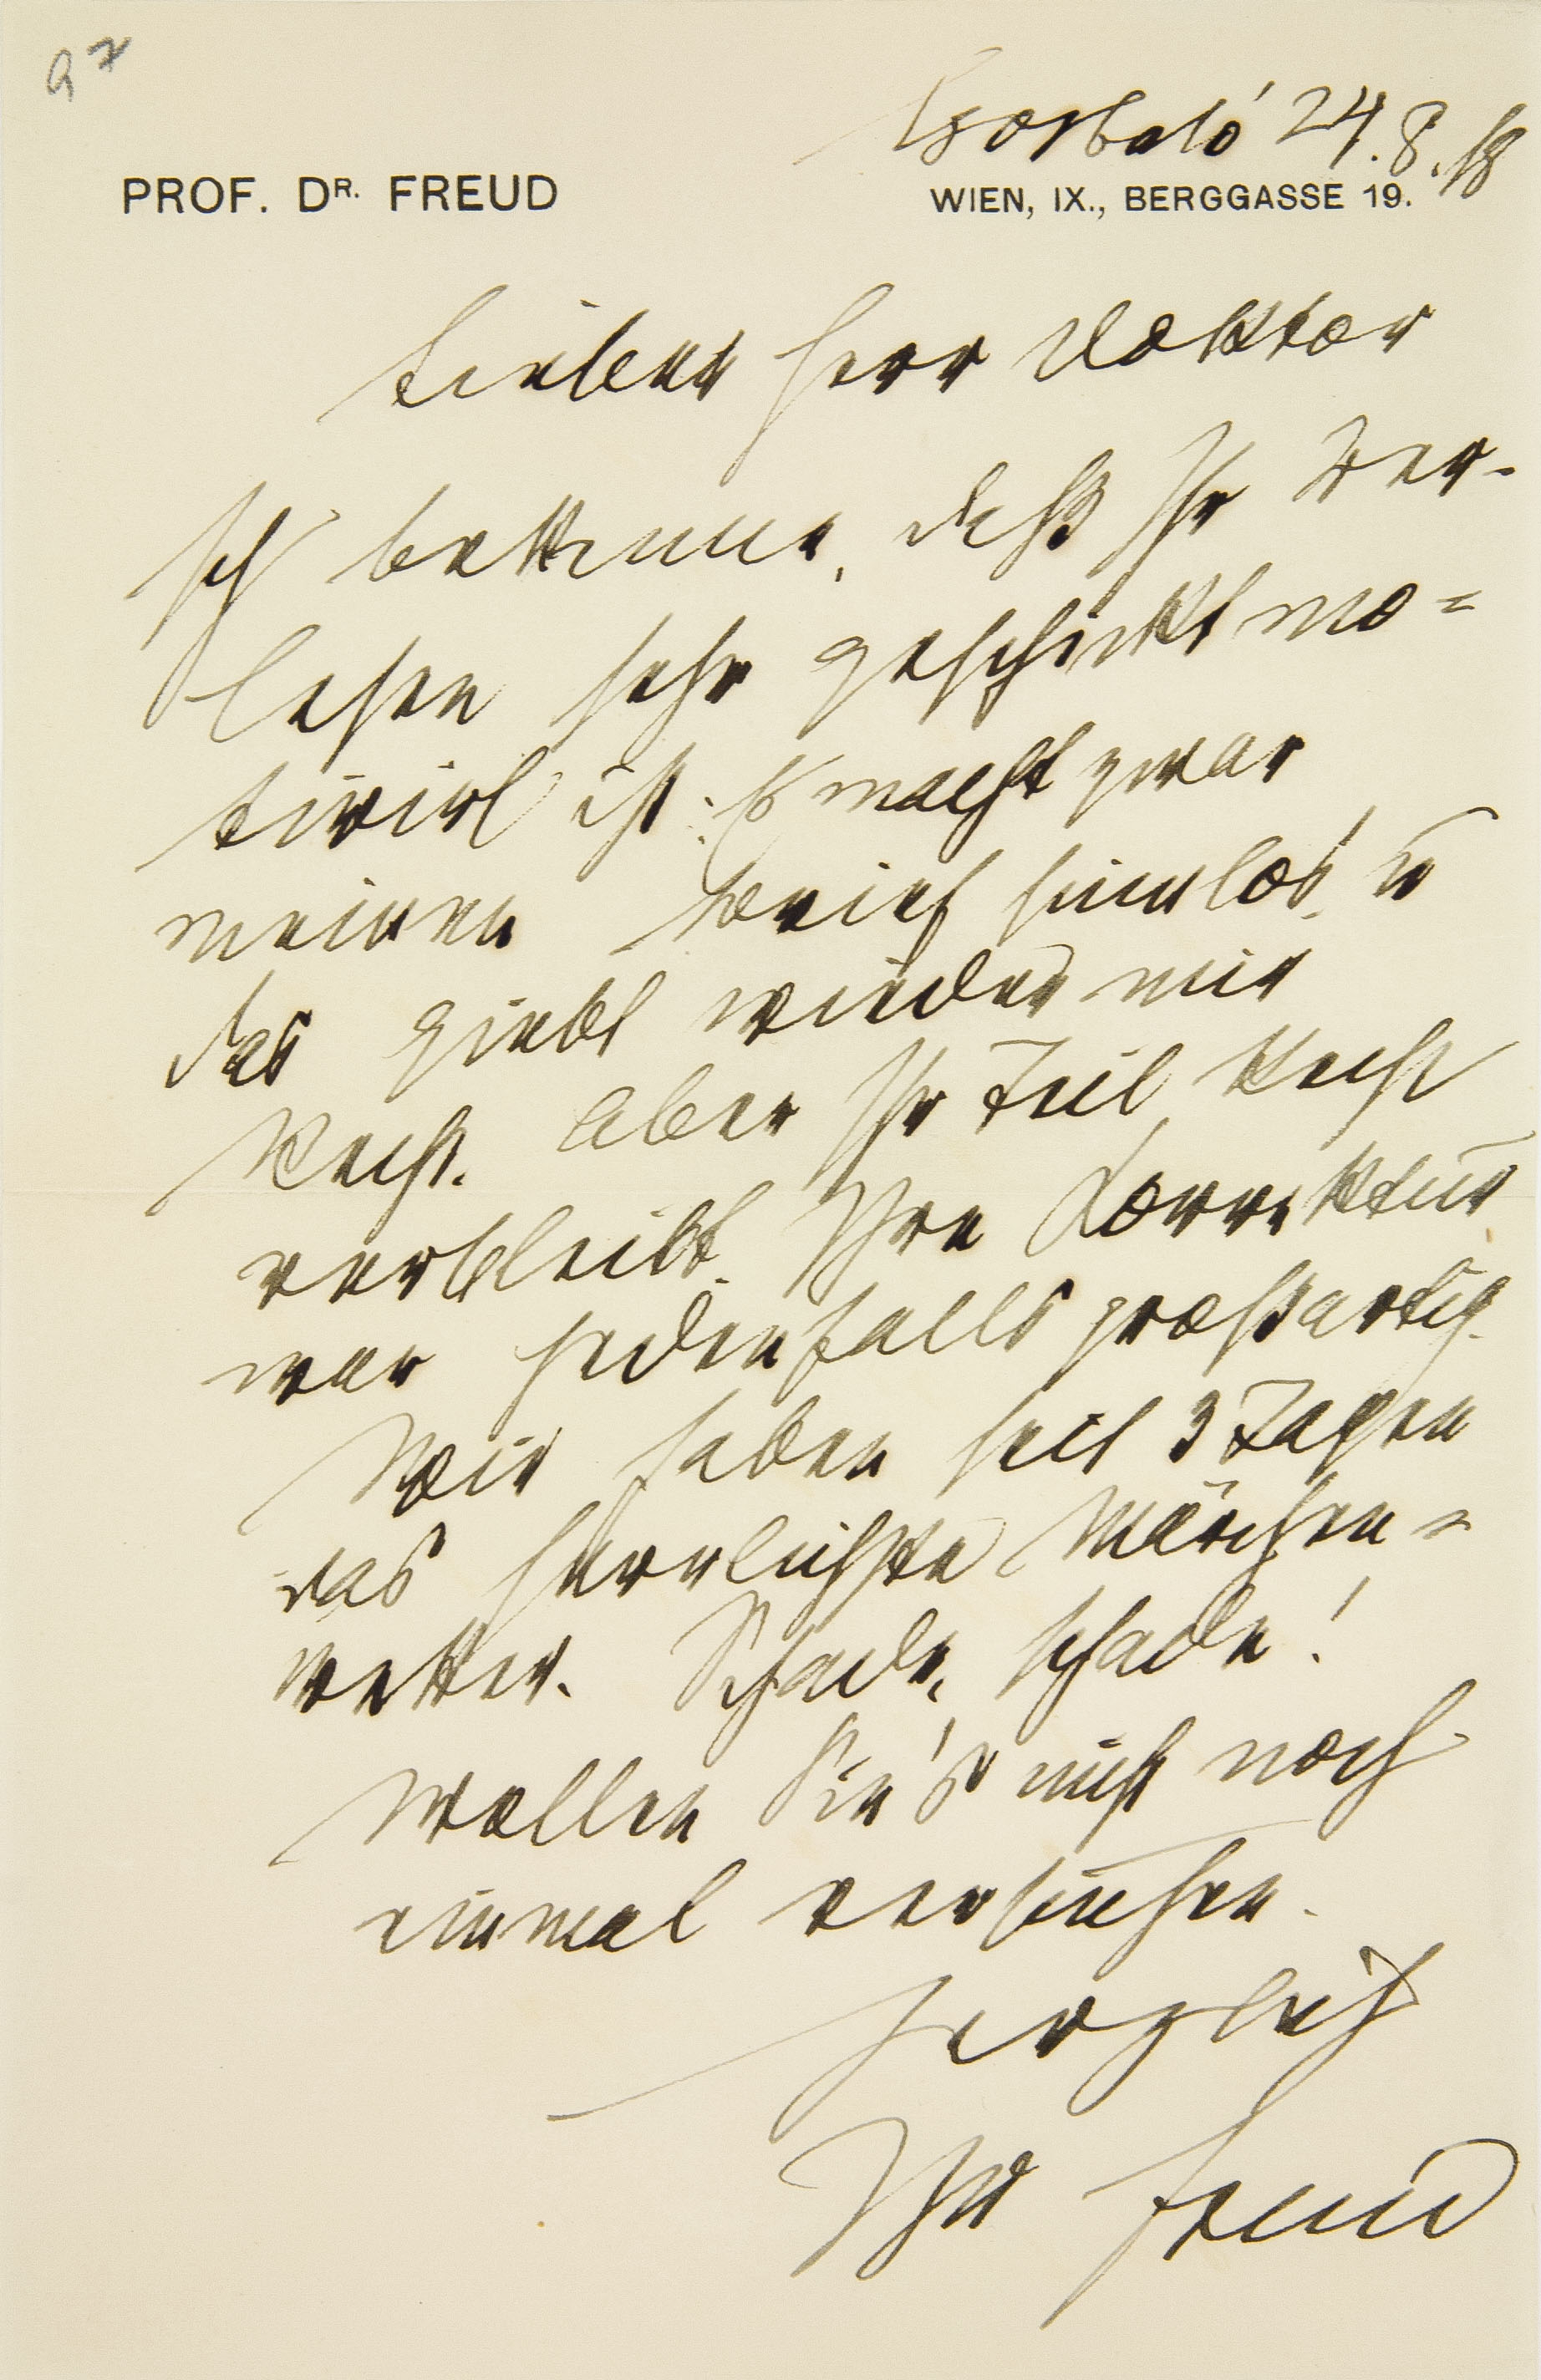 97
Csorbató 24.8.18
PROF. DR. FREUD
WIEN, IX., BERGGASSE 19.
Lieber Herr Doktor
Ich bekenne, daß Ihr Ver-
lesen sehr geschickt mo=
tivirt ist. Es macht zwar
meinen Brief sinnlos, u
das giebt wieder mir
Recht. Aber Ihr Teil Recht
verbleibt. Ihre Korrektur
war jedenfalls großartig.
Wir haben seit 3 Tagen
das herrlichste Märchen=
wetter. Schade, schade!
Wollen Sie's nicht noch
einmal versuchen.
Herzlich
Ihr Freud